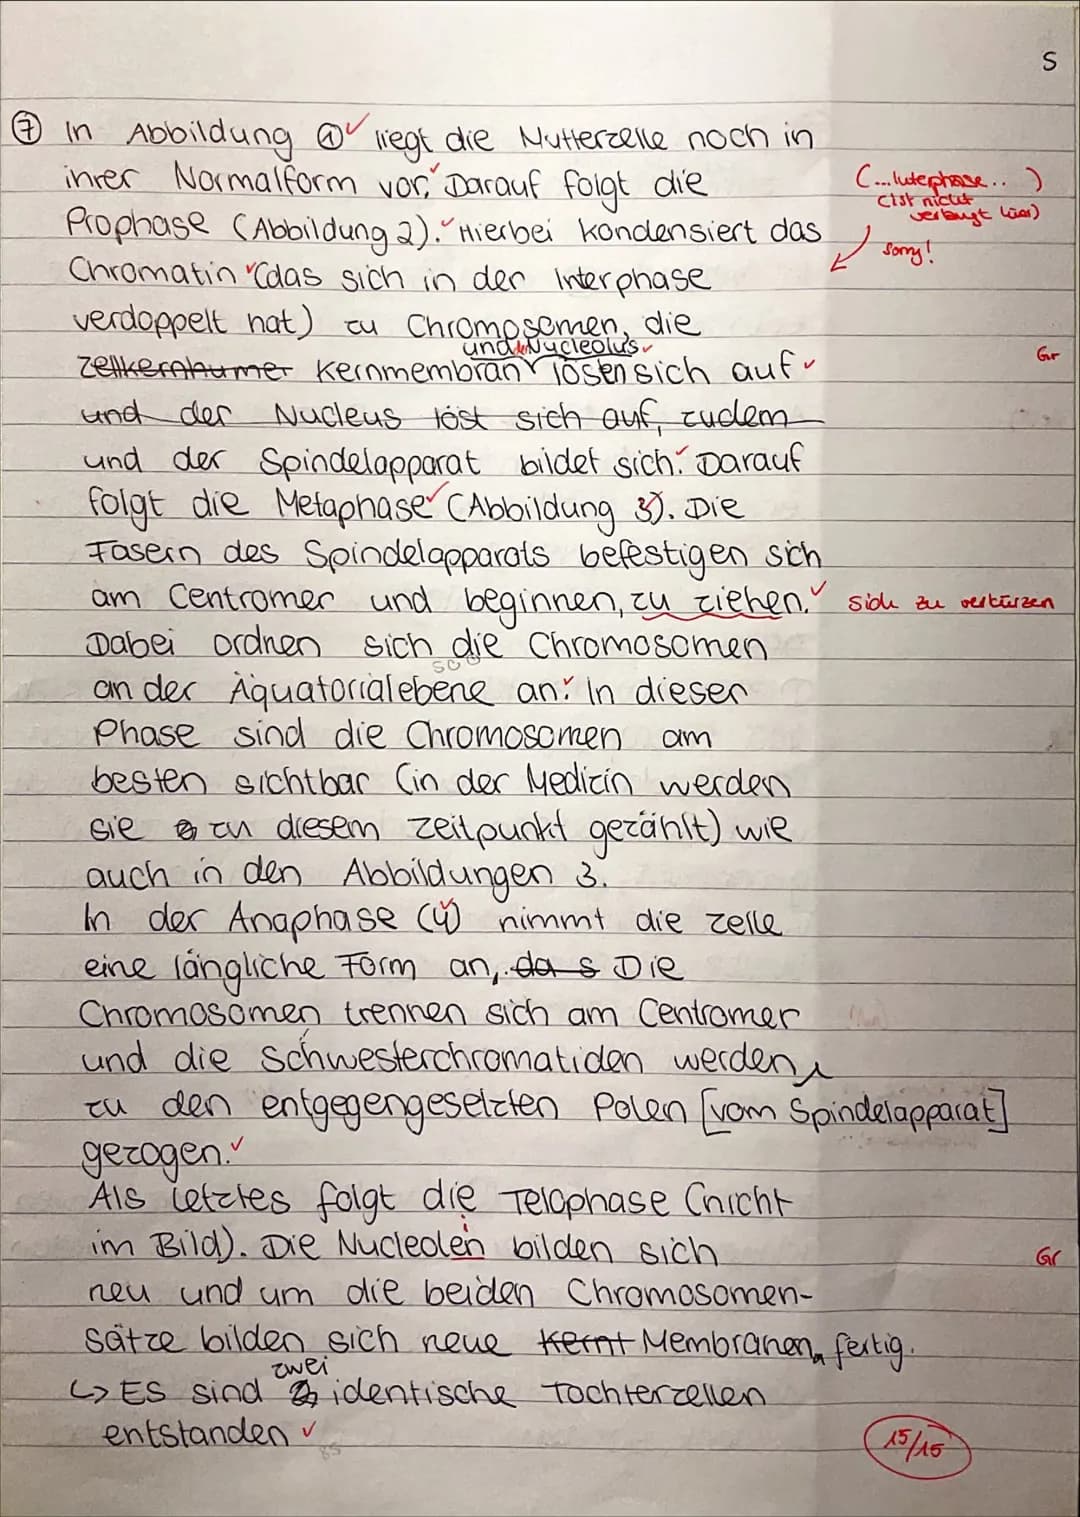 S
⑦ In Abbildung ① liegt die Mutterzelle noch in
ihrer Normalform vor. Darauf folgt die
(...Interphase.. )
(ist nicht
verlangt hier)
Prophase (Abbildung 2). Hierbei kondensiert das
Sorry!
Chromatin (das sich in der Interphase
verdoppelt hat) zu Chromosomen, die
und der Nucleolus
zellkernhumer Kernmembran lösen sich auf
Gr
und der Nucleus löst sich auf, zudem
und der Spindelapparat bildet sich. Darauf
folgt die Metaphase (Abbildung 3). Die
Fasern des Spindelapparats befestigen sich
am Centromer und beginnen, zu ziehen. sich zu verkürzen
Dabei ordnen sich die Chromosomen
an der Äquatorialebene an. In dieser
Phase sind die Chromosomen am
besten sichtbar (in der Medizin werden
sie zu diesem Zeitpunkt gezählt) wie
auch in den Abbildungen 3.
In der Anaphase (4) nimmt die Zelle
eine längliche Form an, das Die
Chromosomen trennen sich am Centromer
und die Schwesterchromatiden werden
zu den entgegengesetzten Polen [vom Spindelapparat]
gezogen.
Als letztes folgt die Telophase (nicht
im Bild). Die Nucleolen bilden sich
Gr
neu und um die beiden Chromosomen-
sätze bilden sich neue Kernt Membranen, fertig.
zwei
↳ Es sind 2 identische Tochterzellen
entstanden
15/15